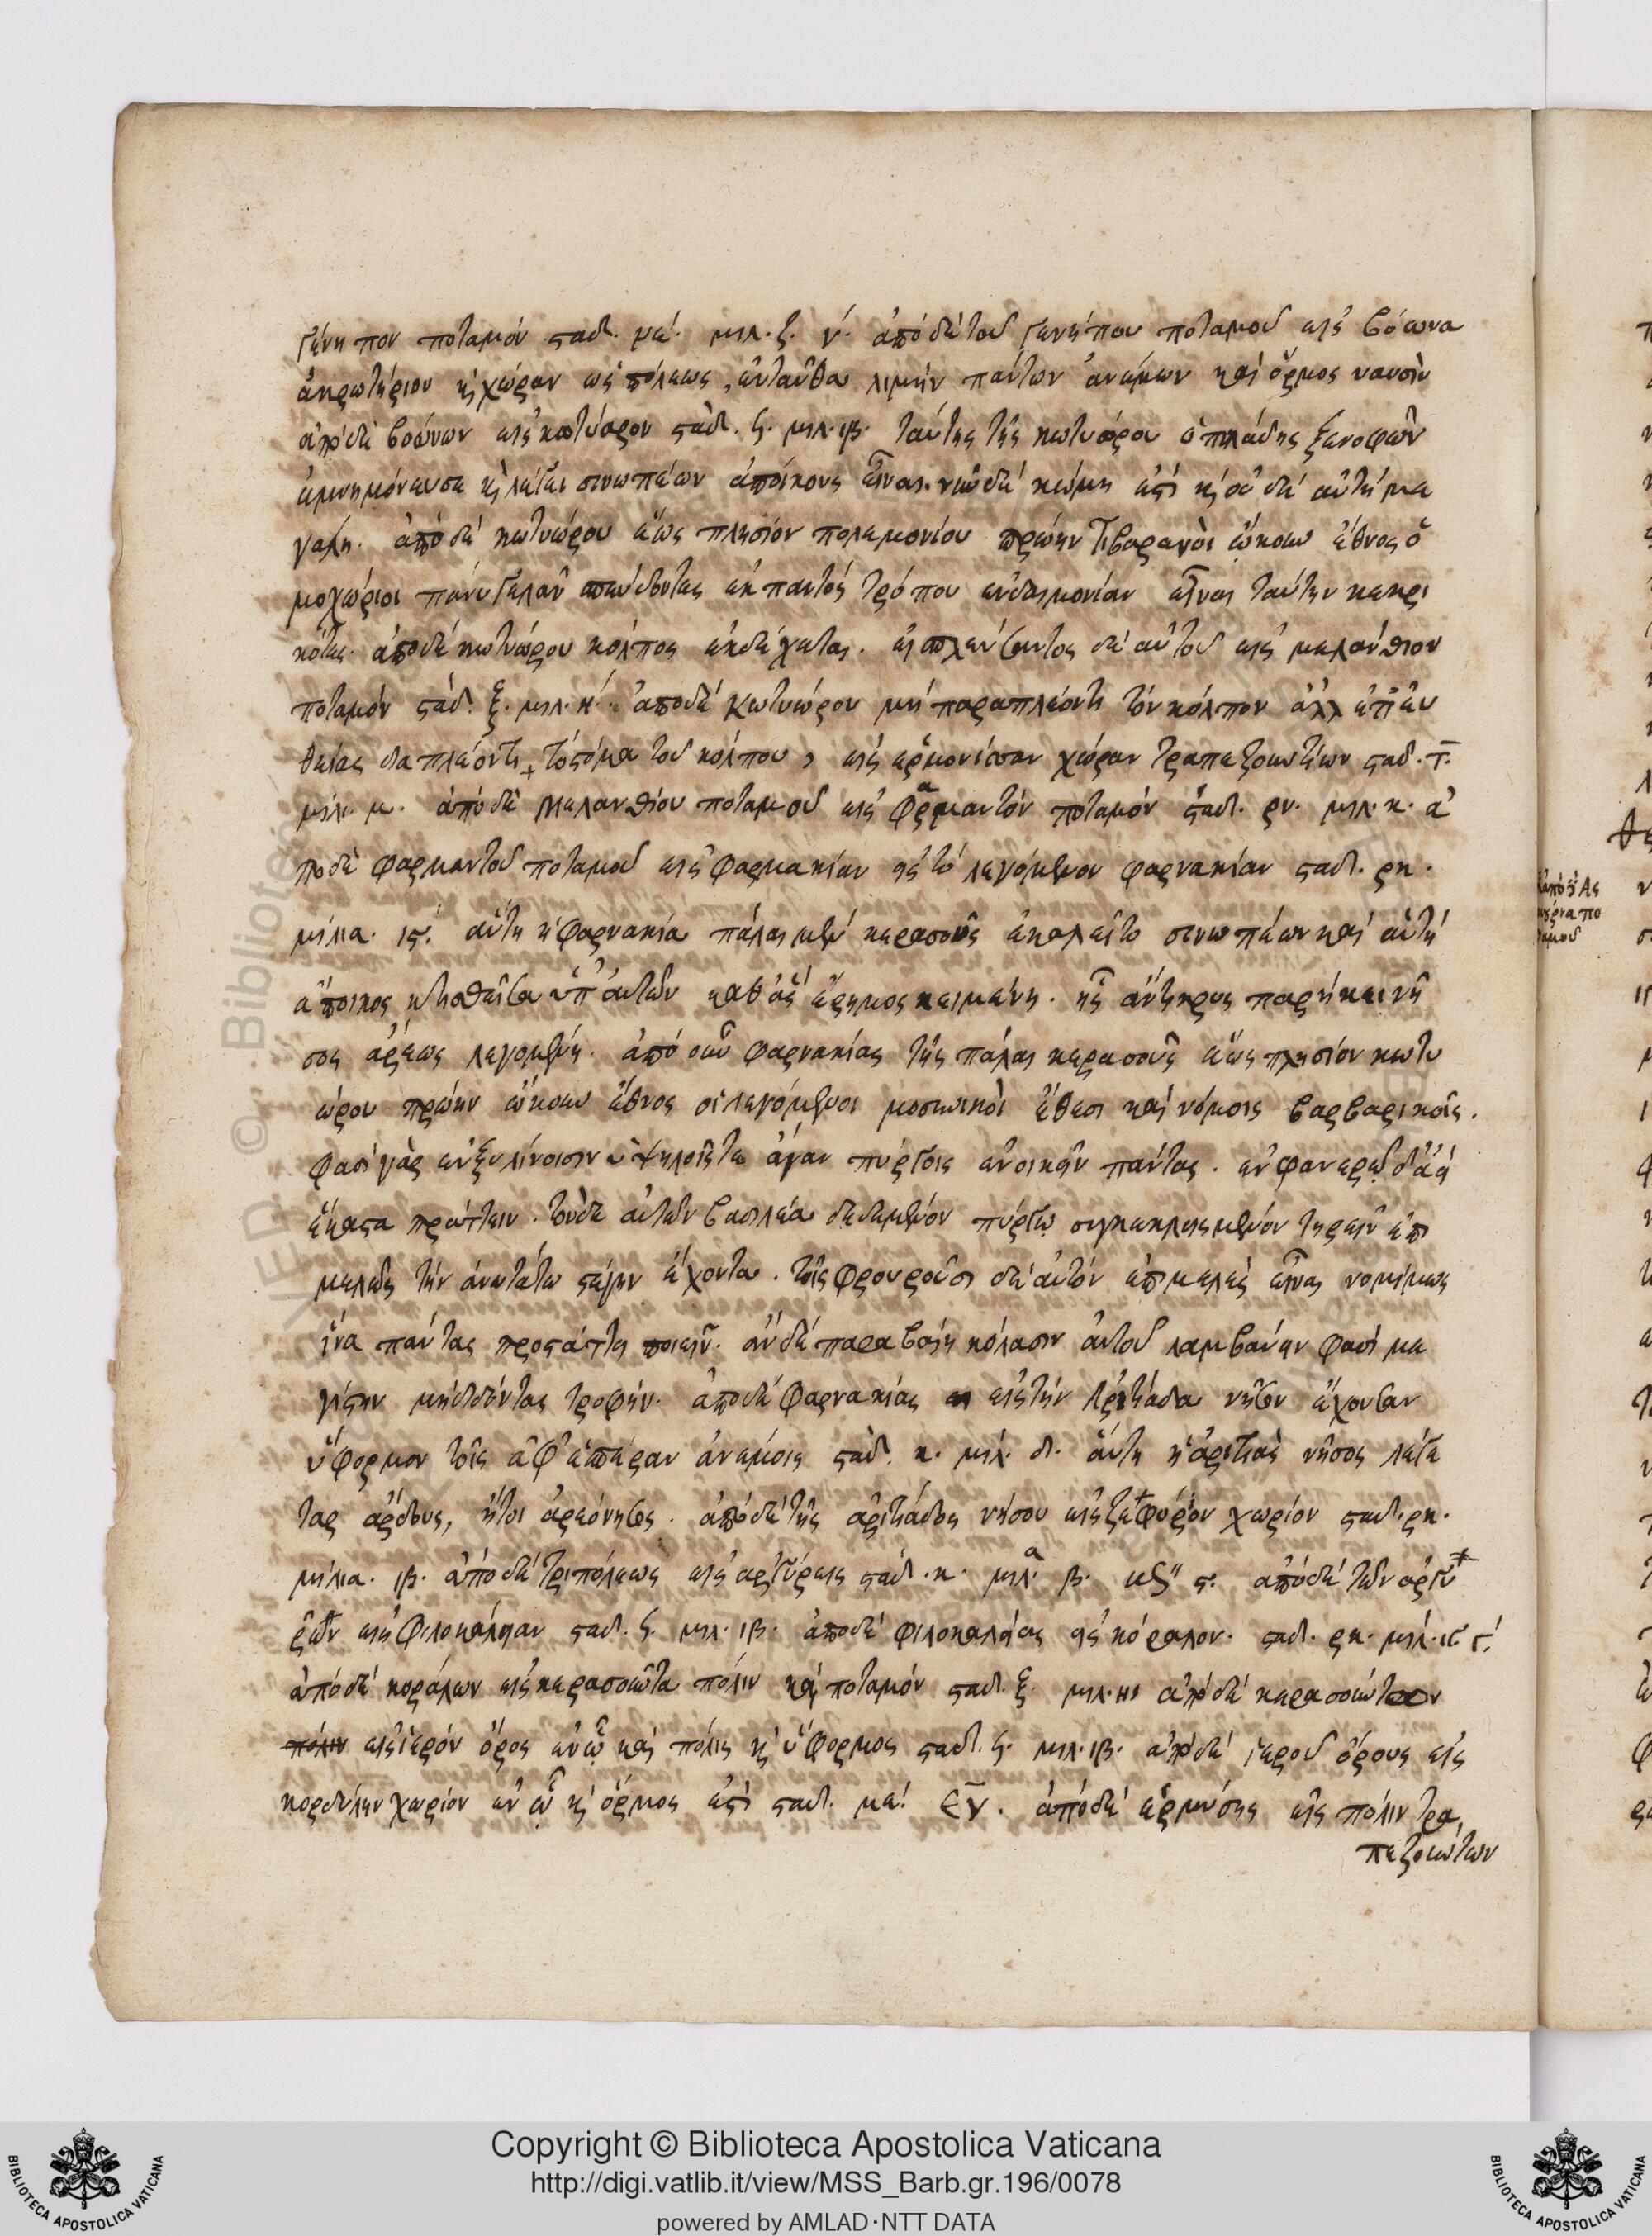 γένηπον ποταμόν σταδ. με΄. μιλ. ζ. γ΄. ἀπὸ δὲ τοῦ γενήπου ποταμοῦ εἰς βόωνα
ἀκρωτήριον κ̀ χώραν ὡς πόλεως, ἐνταῦθα λιμὴν πάντων ἀνέμων καὶ ὅρμος ναυσὶν
ἀπὸ δὲ βοώνων εἰς κοτύορον στάδ. ϟ. μιλ. ιβ. ταύτης τῆς κοτυόρου
ἐμνημόνευσε κ̀ λέγει σινωπέων ἀποίκους εἶναι. νῦν δὲ κώμη ἐστὶ κ̀ οὐδὲ αὐτὴ με
γάλη. ἀπὸ δὲ κοτυώρου ἕως πλησίον πολεμονίου πρώην τιβαρανοὶ ᾤκουν ἔθνος ὁ
μοχώριοι πάνυ γελᾶν σπεύδοντες ἐκ παντὸς τρόπου εὐδαιμονίαν εἶναι ταύτην κεκρι
κότες. ἀπὸ δὲ κωτυώρου κόλπος ἐκδέχεται. εἰσπλεύσαντος δὲ αὐτοῦ εἰς μελάνθιον
ποταμόν στάδ. ξ. μιλ. η΄. ἀπὸ δὲ κωτυώρου μὴ παραπλέοντι τὸν κόλπον ἀλλ ἐπ' εὐ
θείας διαπλέοντι τὸ στόμα τοῦ κόλπου, εἰς ἑρμονίσσαν χώραν τραπεζουντίων σταδ. τ.
μιλ. μ. ἀπὸ δὲ μελανθίου ποταμοῦ εἰς φαρμαντόν ποταμόν στάδ. ρν. μιλ. κ. ἀ
πὸ δὲ φαρμαντοῦ ποταμοῦ εἰς φαρμακίαν εἰς τὸ λεγόμενον φαρνακίαν σταδ. ρκ.
μίλια. ιϛ. αὕτη ἡ φαρνακία πάλαι μὲν κερασοῦς ἐκαλεῖτο σινωπέων καὶ αὐτὴ
ἄποικος κτισθεῖσα ὑπ' αὐτῶν καθ' ἃς ἔρημος κειμένη. ᾗς ἄντικρυς παρήκει νῆ
σος ἄρεως λεγομένη. ἀπὸ οὖν φαρνακίας τῆς πάλαι κερασοῦς ἕως πλησίον κωτυ
ώρου πρώην ᾤκουν ἔθνος οἱ λεγόμενοι μοσυνικοὶ ἔθεσι καὶ νόμοις βαρβαρικοῖς.
φασὶ γὰρ ἐν ξυλίνοισιν ὑψηλοῖς τε ἄγαν πύργοις ἐνοικεῖν πάντας. ἐν φανερῷ δ' ἀεὶ
ἕκαστα πράττειν. τὸν δὲ αὐτῶν βασιλέα δεδεμένον πύργῳ συγκεκλεισμένον τηρεῖν ἐπι
μελῶς τὴν ἀνωτάτω στέγην ἔχοντα. τοῖς φρουροῦσι δὲ αὐτόν ἐπιμελὲς εἶναι νομίμως
ἵνα πάντας προστάττῃ ποιεῖν. ἂν δὲ παραβαίη κόλασιν αὐτοῦ λαμβάνειν φασὶ με
γίστην μὴ διδόντας τροφήν. ἀπὸ δὲ φαρνακίας εἰς τὴν ἀρητιάδα νῆσον ἔχουσαν
ὕφορμον τοῖς ἀφ' ἑσπέραν ἀνέμοις στάδ. κ. μιλ. δ. αὕτη ἡ ἀρητιὰς νῆσος λέγε
ται ἄρεος, ἤτοι ἀρεόνησος. ἀπὸ δὲ τῆς ἀρητιάδος νήσου εἰς ζεφύριον χωρίον σταδ. ρκ.
μίλια. ιβ. ἀπὸ δὲ τριπόλεως εἰς ἀργύρεις στάδ. κ. μιλ. β. ἀπὸ δὲ τῶν ἀργυ
ρῶν εἰς φιλοκάλειαν σταδ. ϟ. μιλ. ιβ. ἀπὸ δὲ φιλοκαλείας εἰς κόραλον. σταδ. ρκ. μίλ. ιϛ
ἀπὸ δὲ κοράλων εἰς κερασοῦντα πόλιν καὶ ποταμόν σταδ. ξ. μιλ. η ἀπὸ δὲ κερασούντων
πόλιν εἰς ἱερὸν ὄρος ἐν ᾧ καὶ πόλις κ̀ ὕφορμος σταδ. ϟ. μιλ. ιβ. ἀπὸ δὲ ἱεροῦ ὄρους εἰς
κορδύλην χωρίον ἐν ᾧ κ̀ ὅρμος ἐστὶ σταδ. με΄. ἀπὸ δὲ ἑρμύσης εἰς πόλιν τρα
πεζούντων
ἀπὸ
Copyright © Biblioteca Apostolica Vaticana
http://digi.vatlib.it/view/MSS_Barb.gr.196/0078
powered by AMLAD·NTT DATA
BIBLIOTECA APOSTOLICA VATICANA
BIBLIOTECA APOSTOLICA VATICANA